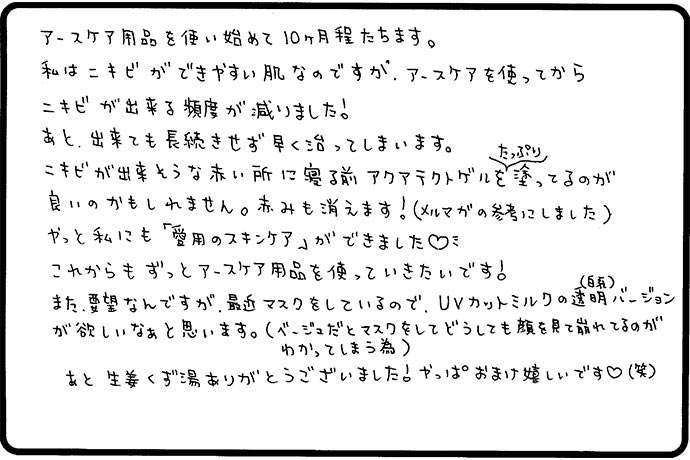 アースケア用品を使い始めて10ヶ月程たちます。
私はニキビができやすい肌なのですが、アースケアを使ってから
ニキビが出来る頻度が減りました!
あと、出来ても長続きせず早く治ってしまいます。
たっぷり
ニキビが出来そうな赤い所に寝る前アクアテクトゲルを塗ってるのが
良いのかもしれません。赤みも消えます!(メルマガの参考にしました)
やっと私にも「愛用のスキンケア」ができました♡ミ
これからもずっとアースケア用品を使っていきたいです!
また、要望なんですが、最近マスクをしているので、UVカットミルクの透明バージョン
が欲しいなぁと思います。(ベージュだとマスクをしてどうしても顔を見て崩れてるのが
わかってしまう為)
あと生姜くず湯ありがとうございました!やっぱおまけ嬉しいです♡(笑)